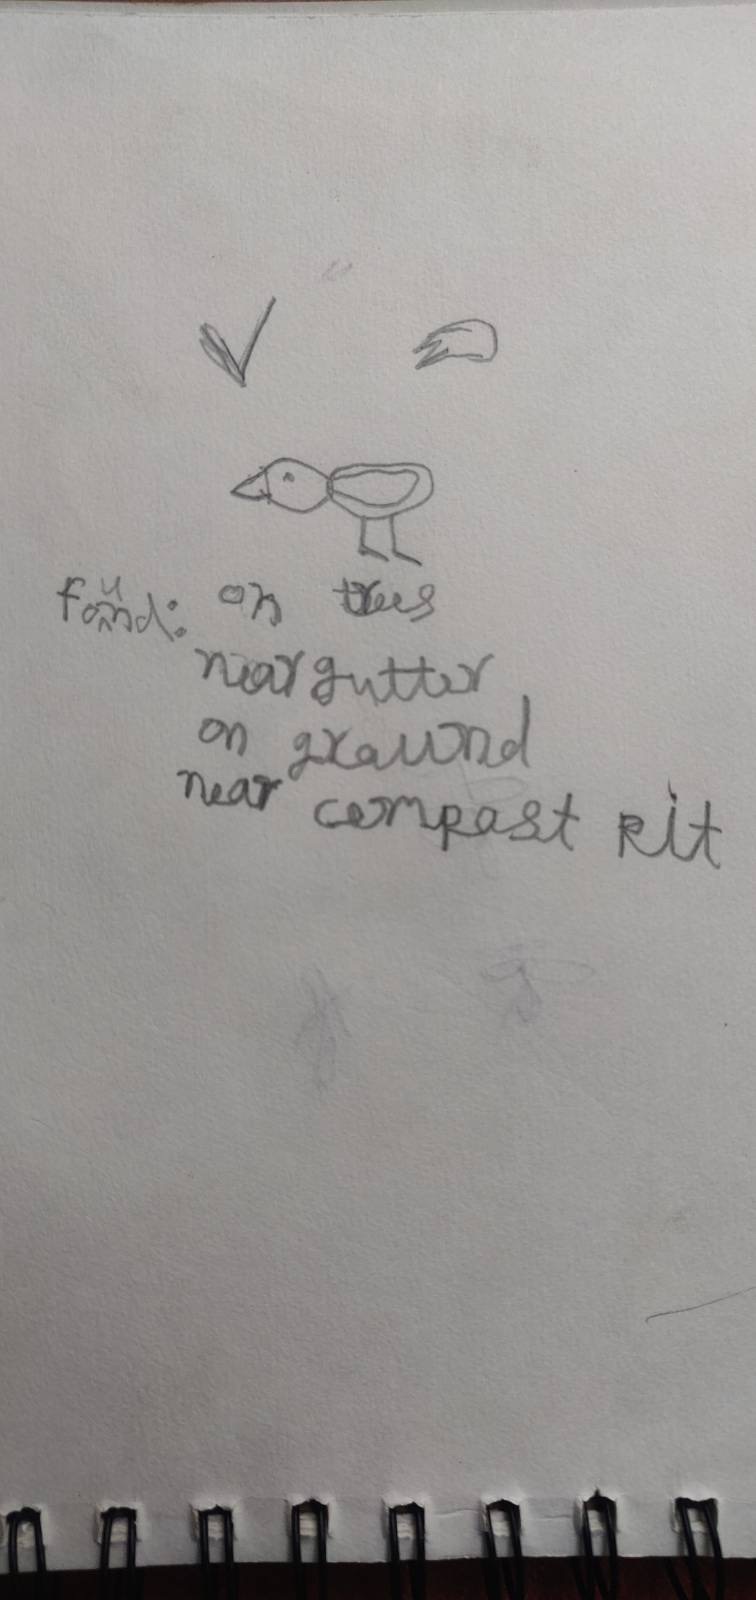 found: on trees
near gutter
on graund
near compast pit